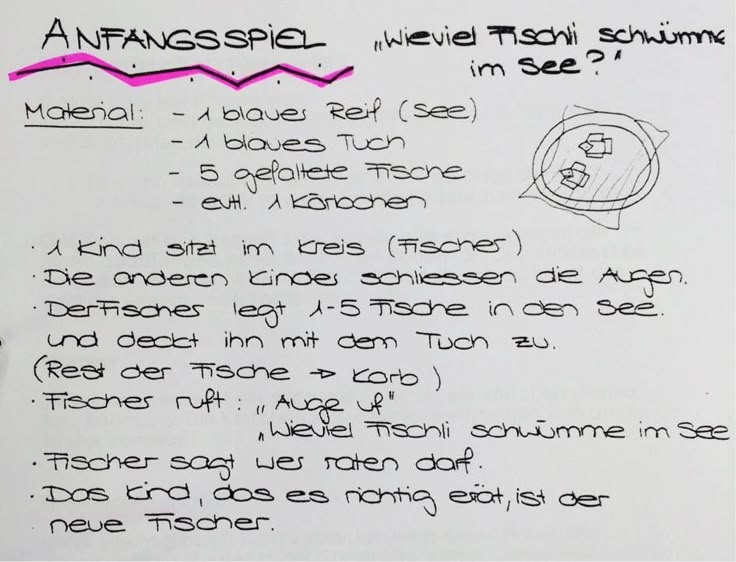 ANFANGSSPIEL „Wieviel Fischli schwümme
im See?"
Material: - 1 blaues Reif (See)
- 1 blaues Tuch
- 5 gefaltete Fische
- evtl. 1 Körbchen
· 1 Kind sitzt im Kreis (Fischer)
· Die anderen Kindes schliessen die Augen.
· Der Fischer legt 1-5 Fische in den See.
und deckt ihn mit dem Tuch zu.
(Rest der Fische → Korb)
· Fischer ruft: „Auge uf"
„Wieviel Fischli schwümme im See
· Fischer sagt wer raten darf.
· Das Kind, das es richtig erät, ist der
neue Fischer.